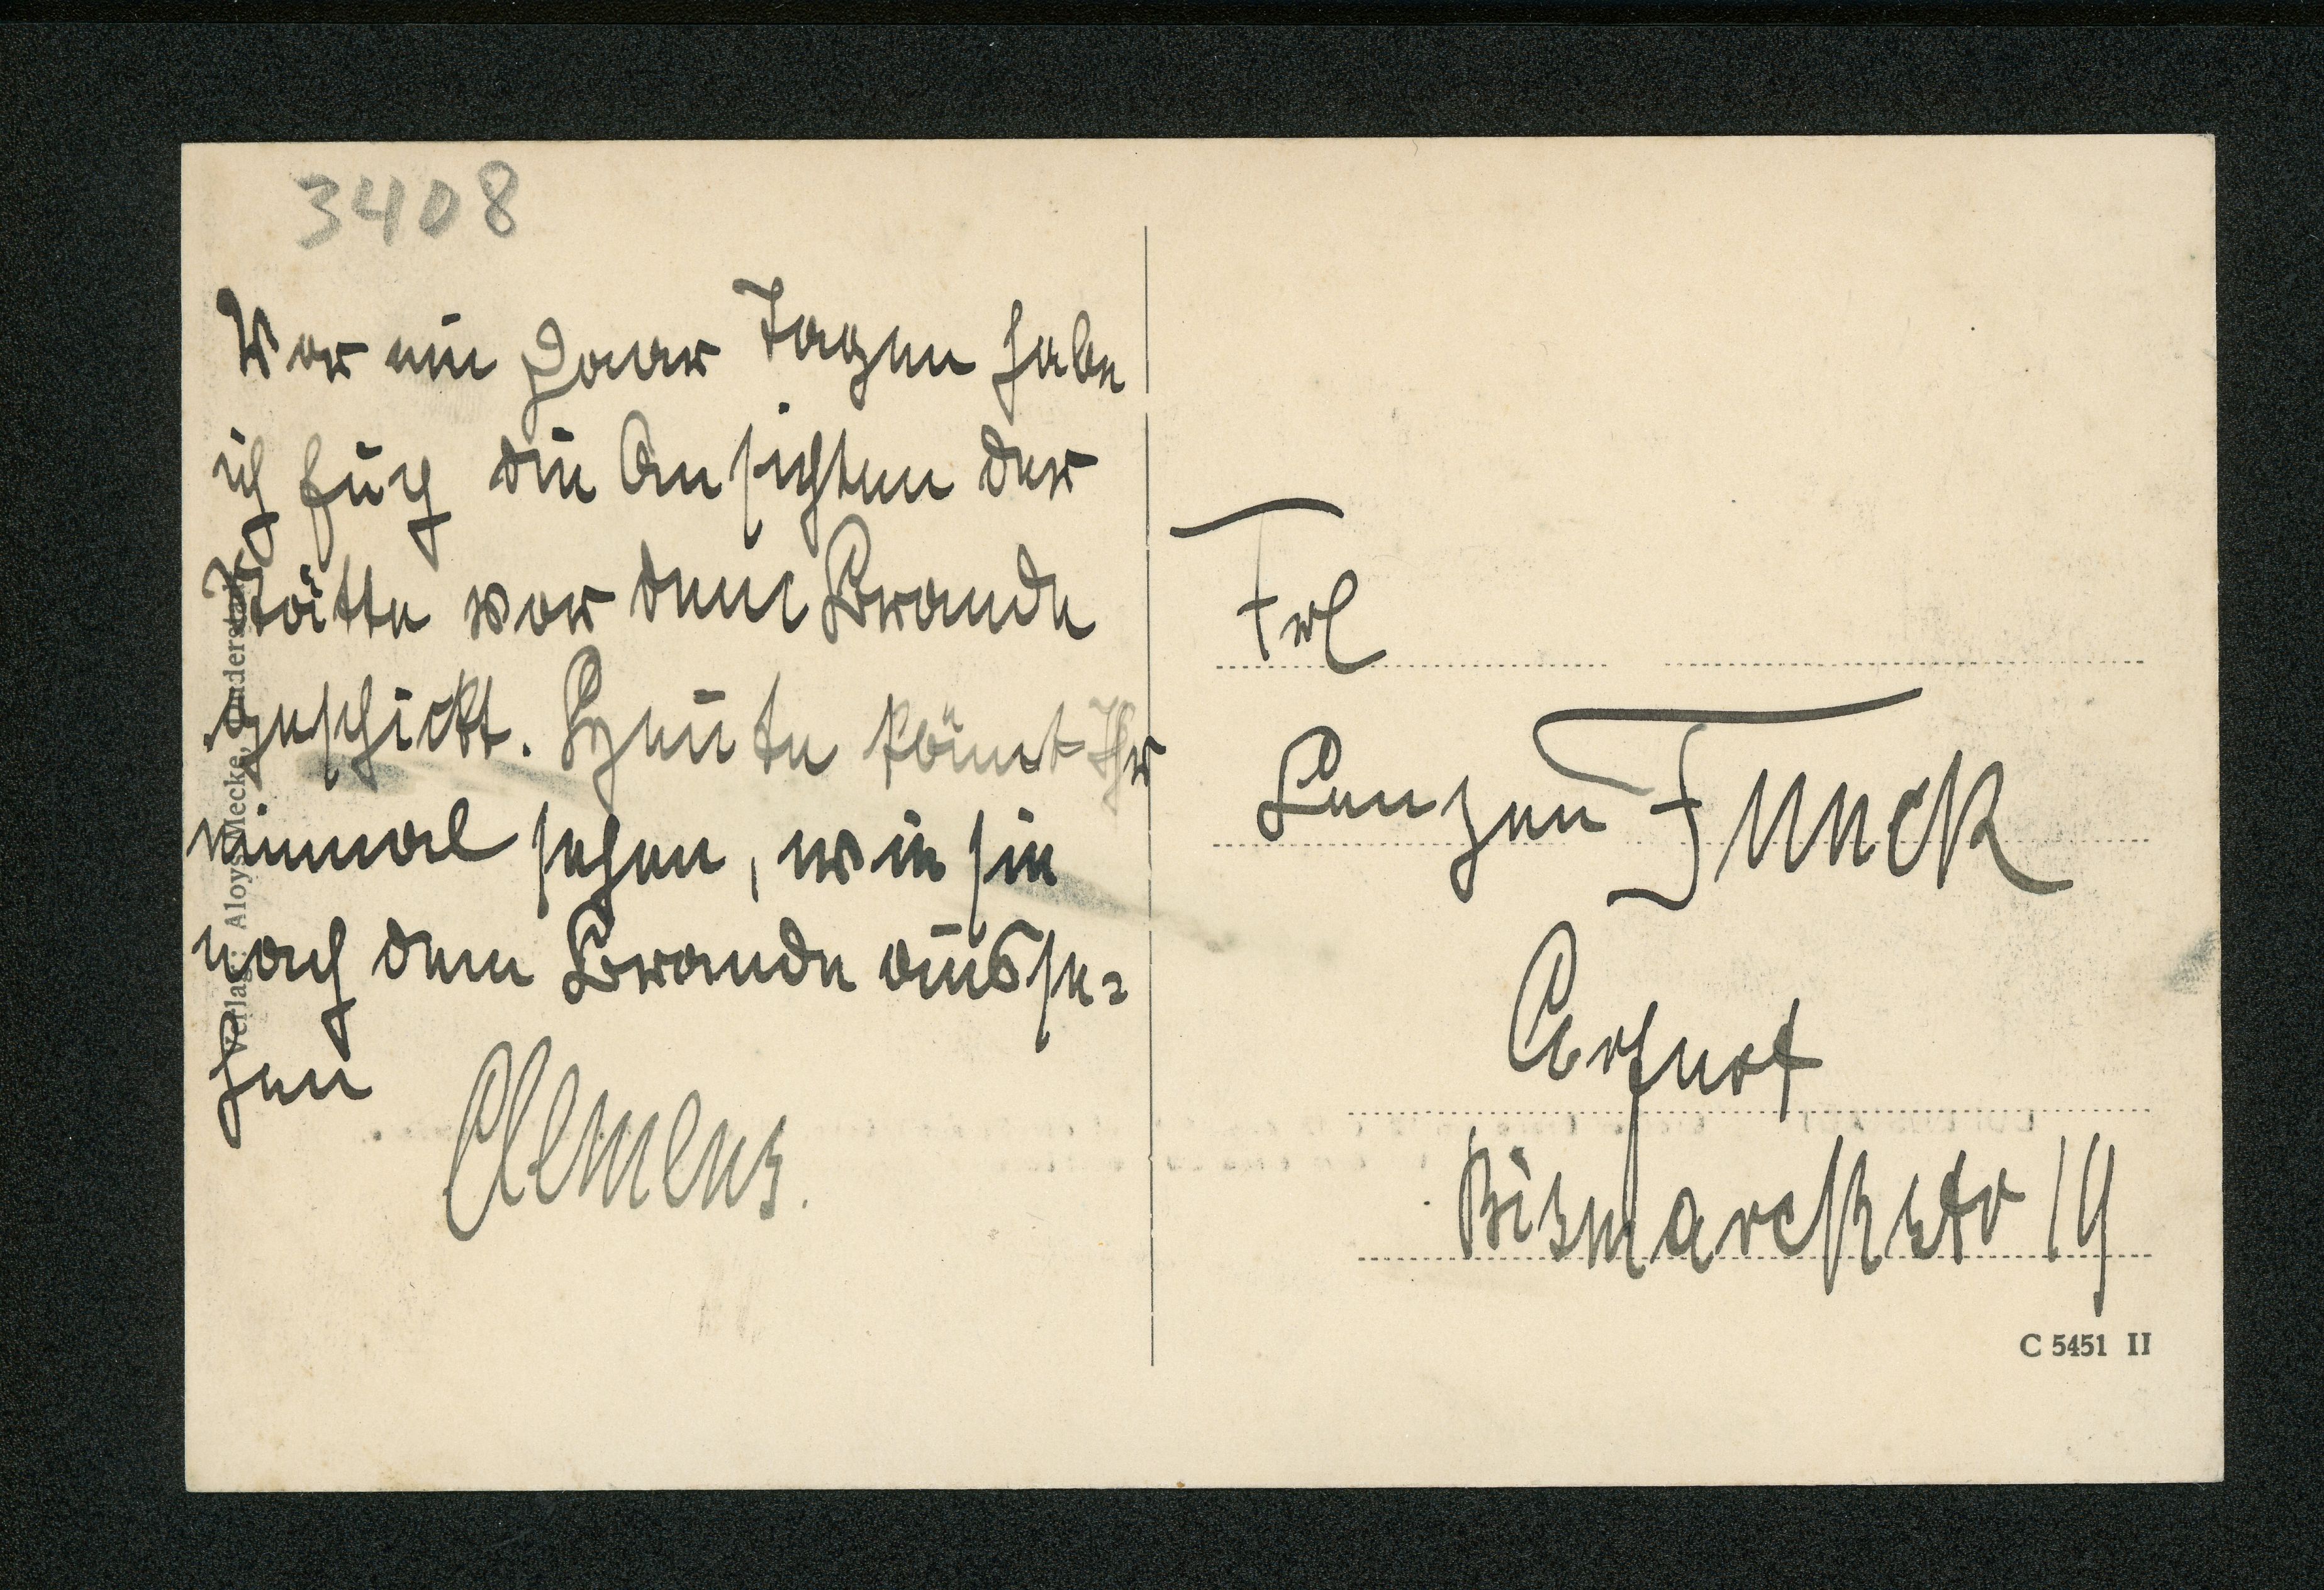 3408
Vor ein Paar Tagen habe
ich Euch die Ansichten der
Stätte vor dem Brande
geschickt. Heute könnt Ihr
einmal sehen, wie sie
nach dem Brande ausse=
hen
Clemens.
Verlag: Aloys Mecke, Duderstadt
Frl
Funck
Erfurt
Bismarckstr 19
C 5451 II